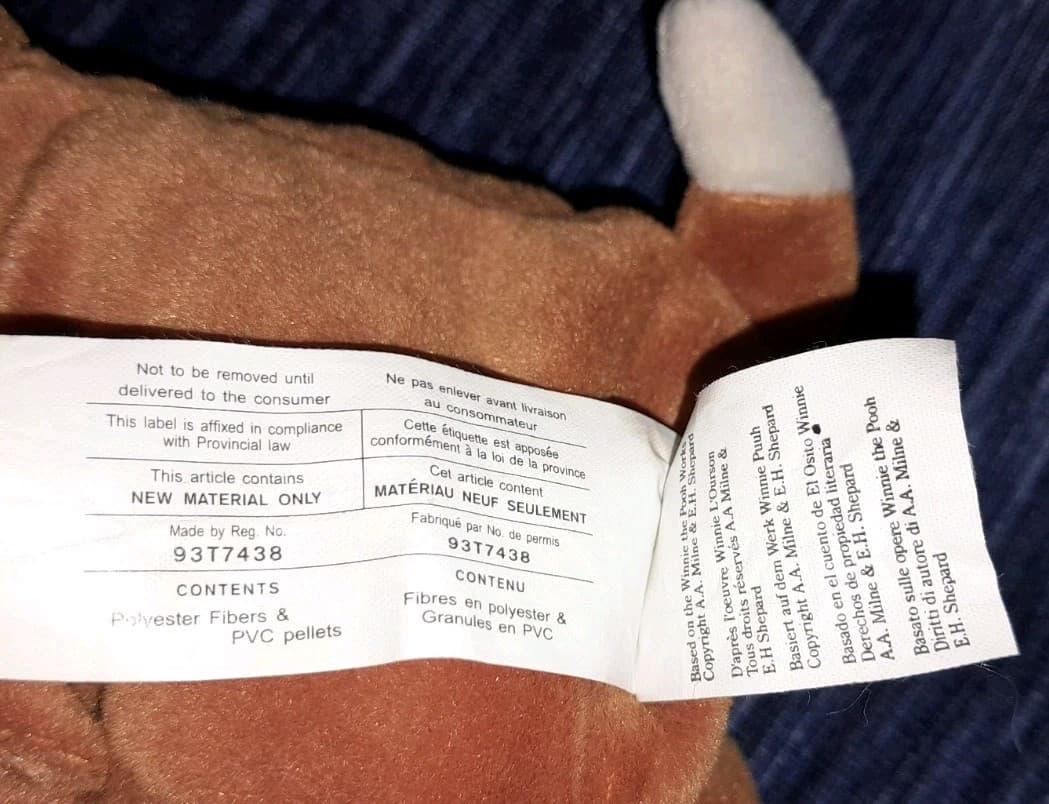 Not to be removed until
delivered to the consumer
This label is affixed in compliance
with Provincial law
This article contains
NEW MATERIAL ONLY
Made by Reg. No.
93T7438
CONTENTS
Polyester Fibers &
PVC pellets
Ne pas enlever avant livraison
au consommateur
Cette étiquette est apposée
conformément à la loi de la province
Cet article content
MATÉRIAU NEUF SEULEMENT
Fabriqué par No. de permis
93T7438
CONTENU
Fibres en polyester &
Granules en PVC
Based on the Winnie the Pooh Works
Copyright A.A. Milne & E.H. Shepard
D'après l'oeuvre Winnie L'Ourson
Tous droits réservés A.A Milne &
E.H Shepard
Basiert auf dem Werk Winnie Puuh
Copyright A.A. Milne & E.H. Shepard
Copyright de El cuento de El Osito Winnie
Basado en el cuento de El Osito Winnie
Derechos de propiedad literaria
A.A. Milne & E.H. Shepard
Basato sulle opere Winnie the Pooh
Diritti di autore di A.A. Milne &
E.H. Shepard